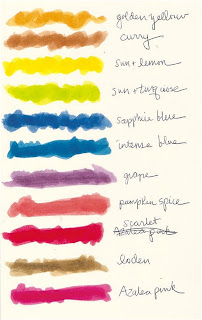 golden yellow
curry
sun + lemon
sun + turquoise
sapphire blue
intense blue
grape
pumpkin spice
scarlet
Azalea pink
loden
Azalea pink